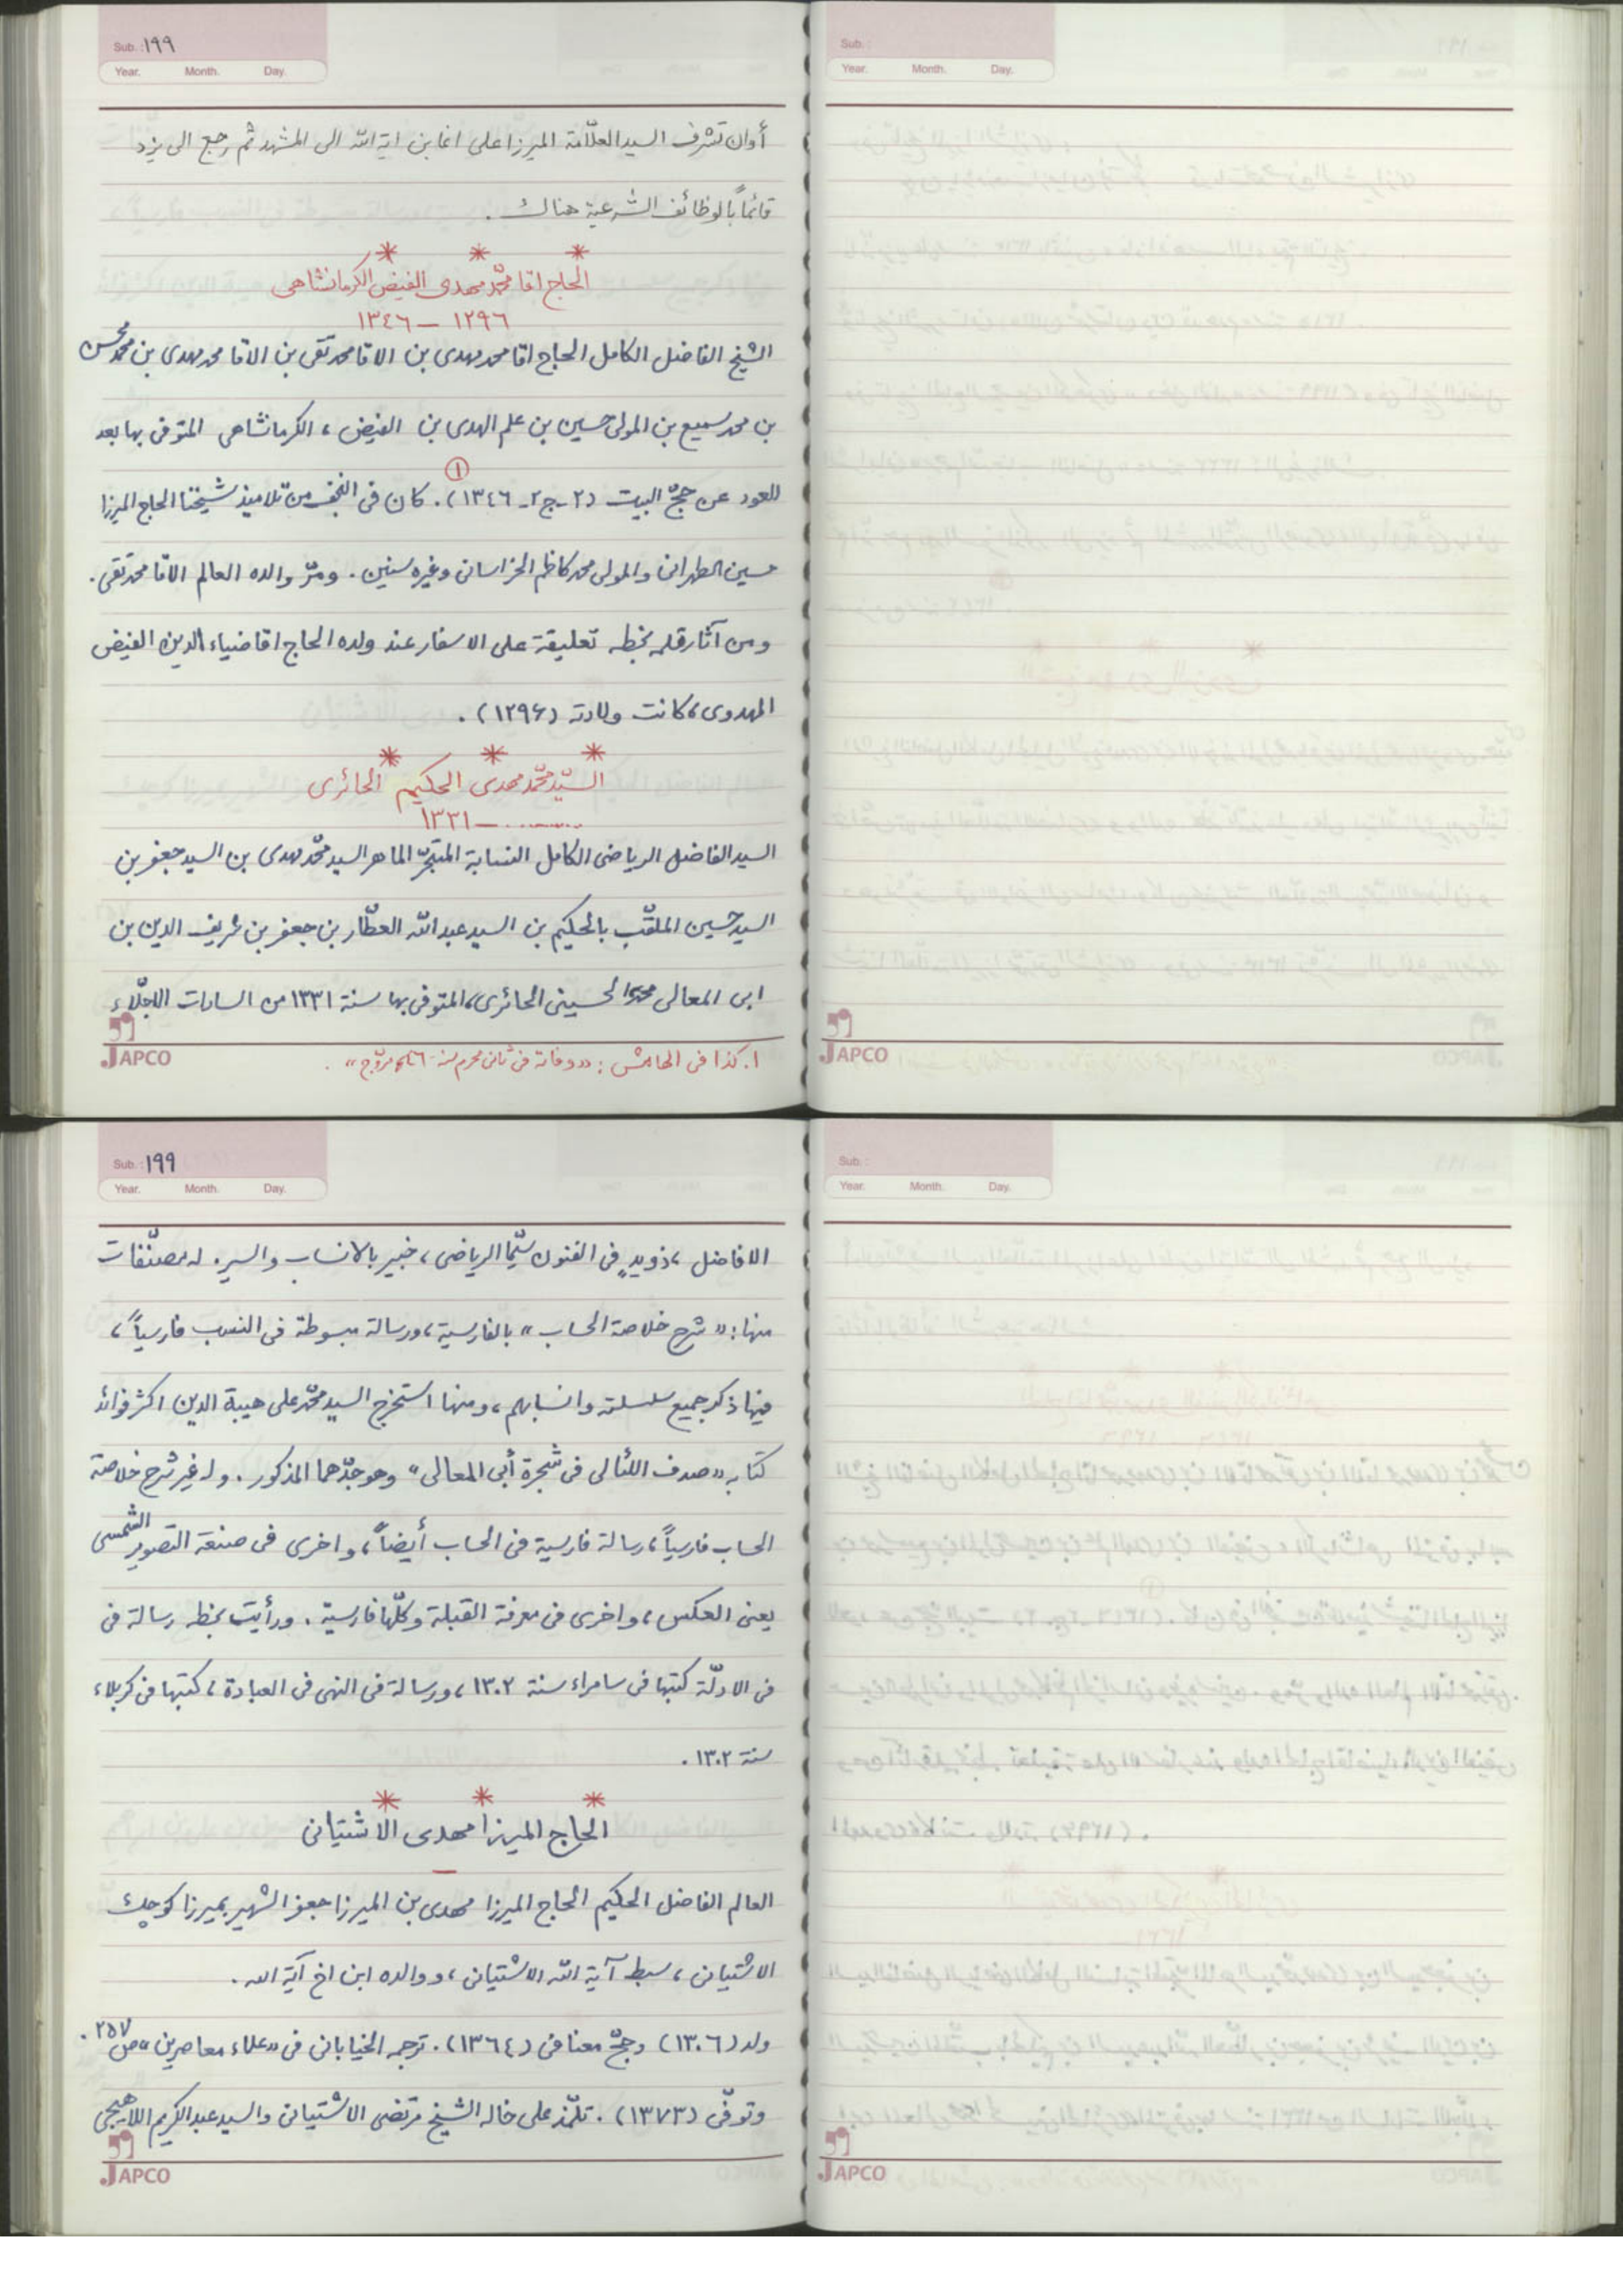 Sub.: ١٩٩
Year. Month. Day.
أوان تشرف السيد العلّامة الميرزا على اغا بن اية الله الى المشهد ثم رجع الى يزد
قائماً بالوظائف الشرعية هناك.
* * *
الحاج اقا محمّد مهدى الفيض الكرمانشاهى
١٢٩٦ – ١٣٤٦
الشيخ الفاضل الكامل الحاج اقا محمد مهدى بن الاقا محمد تقى بن الاقا محمد مهدى بن محمد محسن
بن محمد سميع بن المولى حسين بن علم الهدى بن الفيض، الكرمانشاهى المتوفى بها بعد
العود عن حجّ البيت (٢-ج٢-١٣٤٦)①. كان فى النجف من تلاميذ شيخنا الحاج الميرزا
حسين الطهرانى والمولى محمد كاظم الخراسانى وغيره سنين. ومرّ والده العالم الاقا محمد تقى.
ومن آثار قلمه بخطه تعليقة على الاسفار عند ولده الحاج اقا ضياء الدين الفيض
المهدوى، كانت ولادته (١٢٩۶).
* * *
السيّد محمّد مهدى الحكيم الحائرى
........ – ١٣٣١
السيد الفاضل الرياضى الكامل النسابة المتبحّر الماهر السيد محمّد مهدى بن السيد جعفر بن
السيد حسين الملقّب بالحكيم بن السيد عبد الله العطّار بن جعفر بن شريف الدين بن
ابى المعالى محمد الحسينى الحائرى، المتوفى بها سنة ١٣٣١ من السادات الاجلّاء
١. كذا فى الهامش: «وفاته فى ثانى محرم سنة
JAPCO
Sub.:
Year. Month. Day.
JAPCO
Sub.: ١٩٩
Year. Month. Day.
الافاضل، ذو يدٍ فى الفنون سيّما الرياضى، خبير بالانساب والسير. له مصنّفات
منها: «شرح خلاصة الحساب» بالفارسية، ورسالة مبسوطة فى النسب فارسياً،
فيها ذكر جميع سلسلته وانسابهم، ومنها استخرج السيد محمّد على هيبة الدين اكثر فوائد
كتابه «صدف اللئالى فى شجرة أبى المعالى» وهو جدّهما المذكور. وله غير شرح خلاصة
الحساب فارسياً، رسالة فارسية فى الحساب أيضاً، واخرى فى صنعة التصوير الشمسى
يعنى العكس، واخرى فى معرفة القبلة وكلّها فارسية. ورأيت بخطه رسالة فى
فى الادلّة كتبها فى سامراء سنة ١٣٠٢، ورسالة فى النهى فى العبادة، كتبها فى كربلاء
سنة ١٣٠٢.
* * *
الحاج الميرزا مهدى الاشتيانى
–
العالم الفاضل الحكيم الحاج الميرزا مهدى بن الميرزا جعفر الشهير بميرزا كوچك
الاشتيانى، سبط آية الله الاشتيانى، ووالده ابن اخ آية الله.
ولد (١٣٠٦) وحجّ معنا فى (١٣٦٤). ترجمه الخيابانى فى «علماء معاصرين» ص ٢٥٧.
وتوفّى (١٣٧٣). تلمّذ على خاله الشيخ مرتضى الاشتيانى والسيد عبد الكريم اللاهيجى
JAPCO
Sub.:
Year. Month. Day.
JAPCO